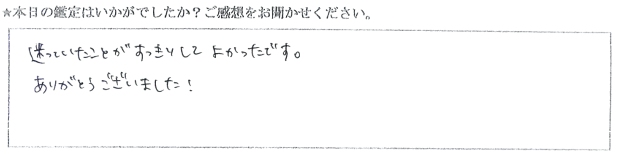 ☆本日の鑑定はいかがでしたか?ご感想をお聞かせください。
迷っていたことがすっきりして よかったです。
ありがとうございました!